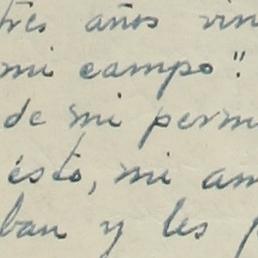 tres años vin
mi campo".
de mi perm
ésto, mi am
ban y les p